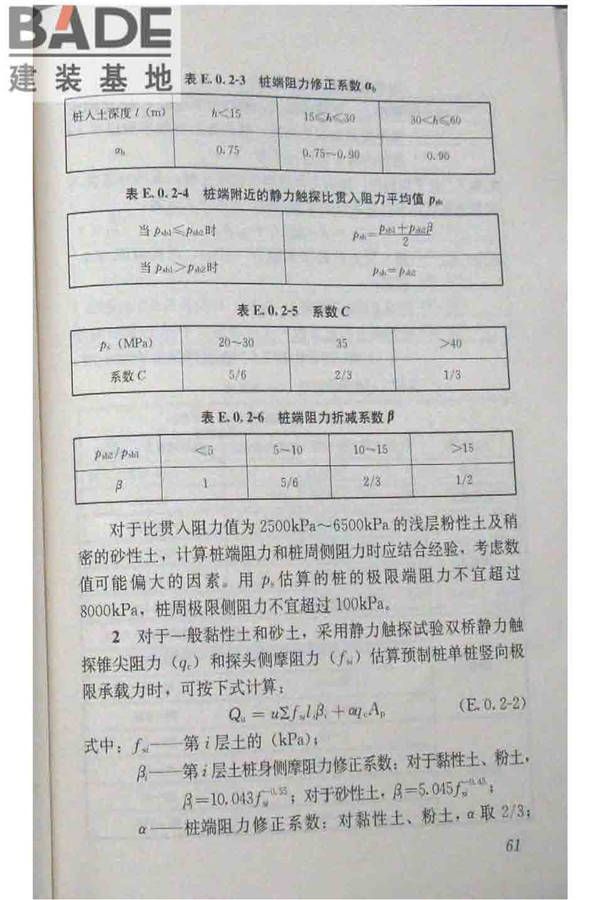 BADE
建装基地
表 E.0.2-3 桩端阻力修正系数 αb
桩入土深度 l (m) h<15 15≤h≤30 30<h≤60
αb 0.75 0.75~0.90 0.90
表 E.0.2-4 桩端附近的静力触探比贯入阻力平均值 psb
当 psb1≤psb2时 psb=(psb1+psb2β)/2
当 psb1>psb2时 psb=psb2
表 E.0.2-5 系数 C
ps (MPa) 20~30 35 >40
系数 C 5/6 2/3 1/3
表 E.0.2-6 桩端阻力折减系数 β
psb2/psb1 <5 5~10 10~15 >15
β 1 5/6 2/3 1/2
对于比贯入阻力值为 2500kPa~6500kPa 的浅层粉性土及稍
密的砂性土，计算桩端阻力和桩周侧阻力时应结合经验，考虑数
值可能偏大的因素。用 ps 估算的桩的极限端阻力不宜超过
8000kPa，桩周极限侧阻力不宜超过 100kPa。
2 对于一般黏性土和砂土，采用静力触探试验双桥静力触
探锥尖阻力（qc）和探头侧摩阻力（fsi）估算预制桩单桩竖向极
限承载力时，可按下式计算：
Qu = uΣfsiliβi + αqcAp (E.0.2-2)
式中：fsi——第 i 层土的（kPa）；
βi——第 i 层土桩身侧摩阻力修正系数：对于黏性土、粉土，
βi=10.043fsi^-0.55；对于砂性土，βi=5.045fsi^-0.45；
α——桩端阻力修正系数：对黏性土、粉土，α 取 2/3；
61